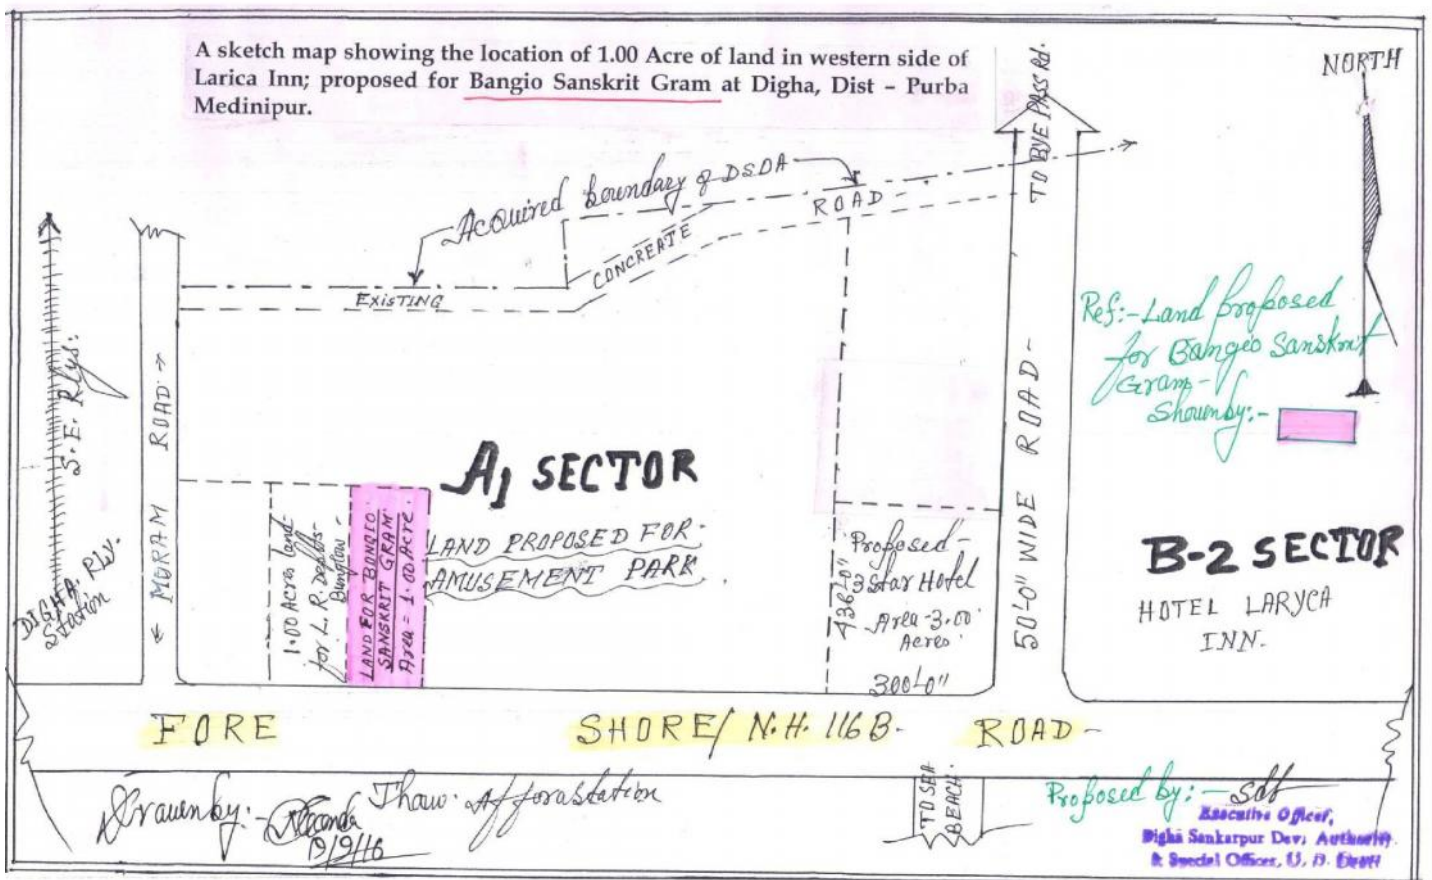 A sketch map showing the location of 1.00 Acre of land in western side of
Larica Inn; proposed for Bangio Sanskrit Gram at Digha, Dist – Purba
Medinipur.
NORTH
TO BYE PASS Rd.
Acquired boundary of DSDA
ROAD
CONCREATE
EXISTING
Ref:- Land proposed
for Bangio Sanskrit
Gram -
Shown by:-
S.E. Rlys.
MORAM ROAD
DIGHA. RLY.
Station
A1 SECTOR
LAND PROPOSED FOR.
AMUSEMENT PARK
1.00 Acres land
for L.R. Debt's
Bunglow
LAND FOR BONGIO
SANSKRIT GRAM.
Area = 1.00 Acre.
436'-0"
Proposed
3 Star Hotel
Area - 3.00
Acres
300'-0"
50'-0" WIDE ROAD -
B-2 SECTOR
HOTEL LARYCA
INN.
FORE SHORE/ N.H. 116B. ROAD -
Drawn by:-
19/9/16
Thaw. Afforastation
TO SEA
BEACH.
Proposed by:- Sd/-
Executive Officer,
Digha Sankarpur Dev. Authority
& Special Officer, U. D. Deptt